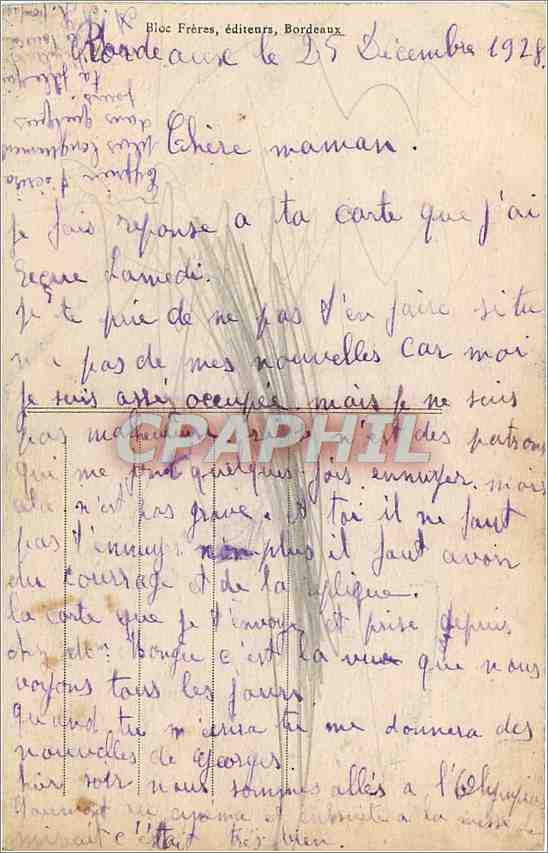 Bloc Frères, éditeurs, Bordeaux
Bordeaux le 25 Décembre 1928
Chère maman.
je fais reponse a ta carte que j'ai
reçue Samedi.
je te prie de ne pas t'en faire si tu
pas de mes nouvelles car moi
je suis assés occupée. mais je ne suis
pas n'est des patrons
qui me quelques fois ennuyer. mais
cela n'est pas grave. et toi il ne faut
pas t'ennuyer non plus il faut avoir
du courrage et de la
la carte que je t'envoye et prise depuis
chez c'est la vue que nous
voyons tous les jours
quand tu m'ecrira tu me donnera des
nouvelles de Georges
hier soir nous sommes allés a l'Olympia
au cynéma et ensuite a la messe de
minuit c'était très bien.
t'ecrire
plus longuement
dans quelques
jours
ta fille qui
CPAPHIL